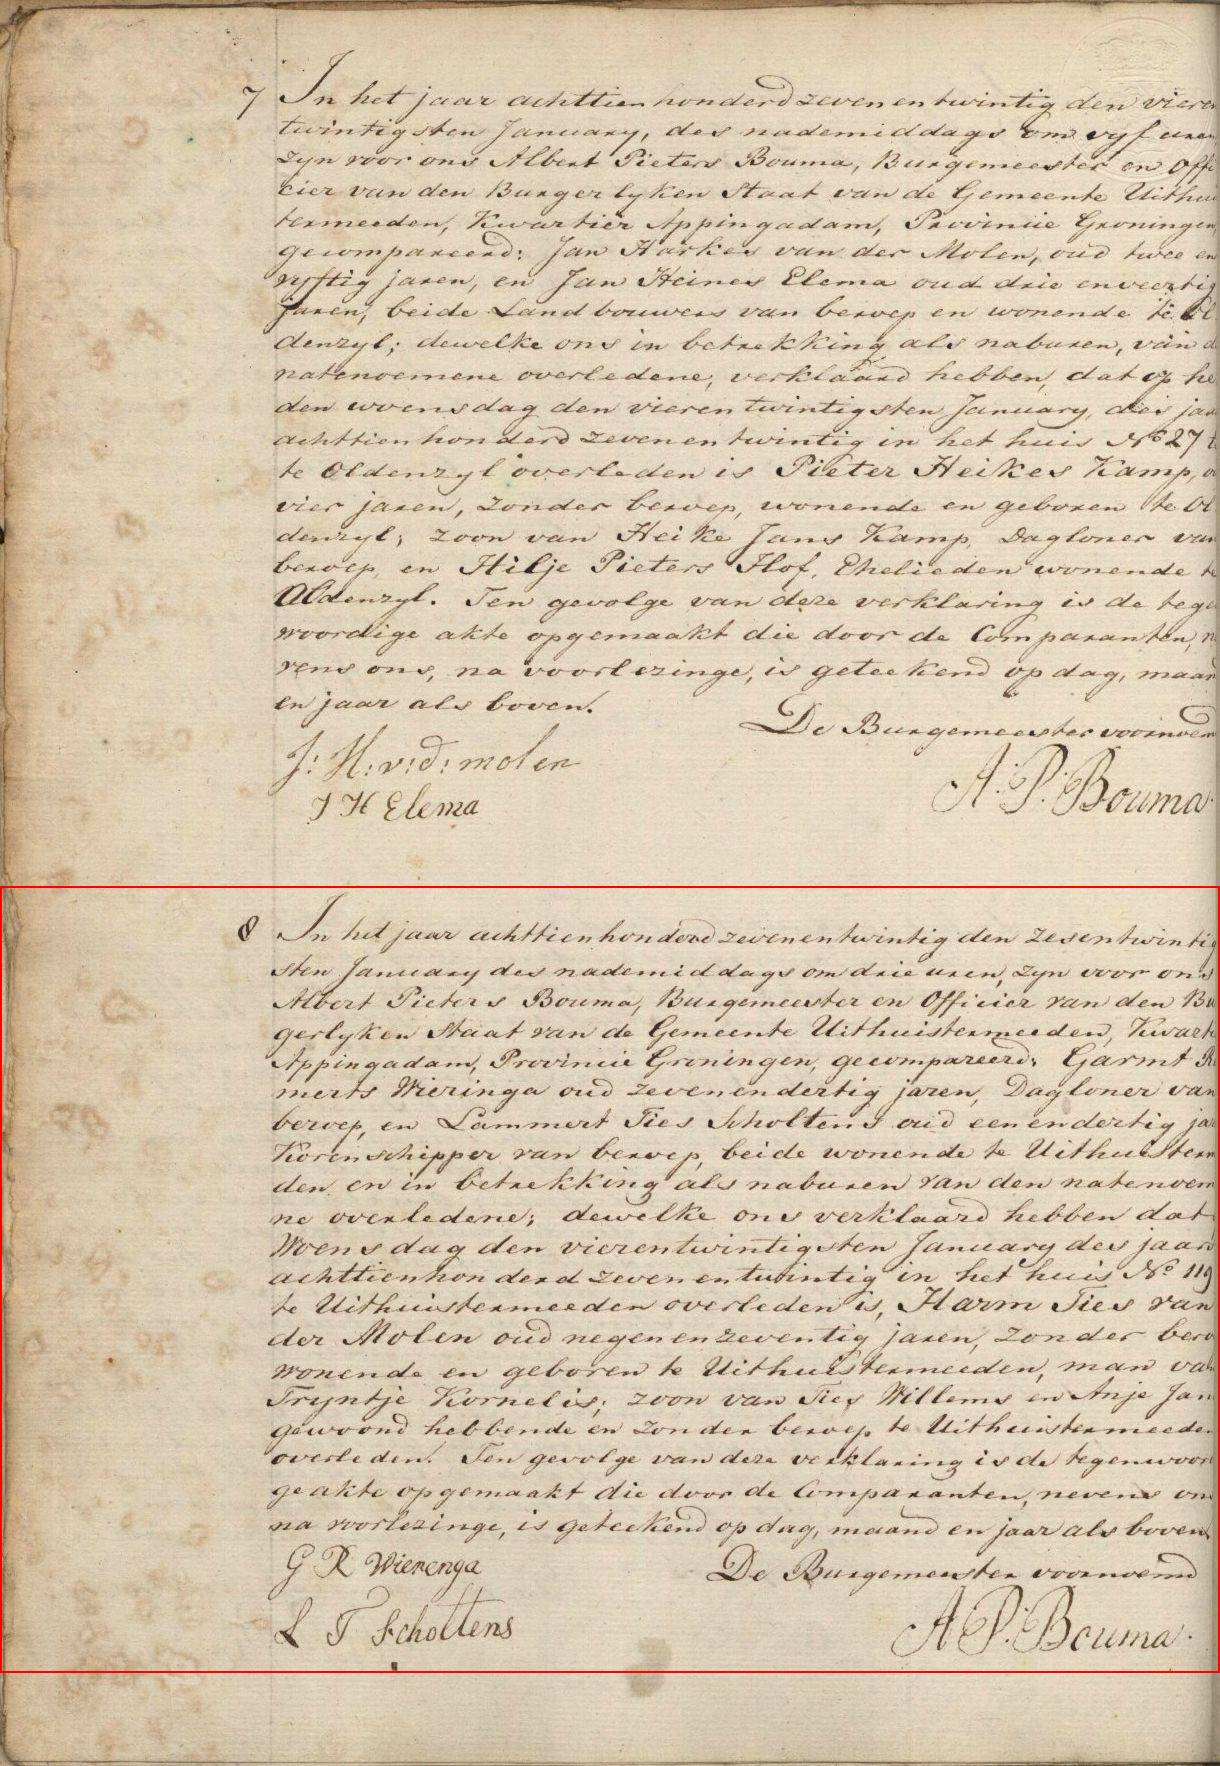 7 In het jaar achttien honderd zevenentwintig den vieren
twintigsten January, des nademiddags om vyf uren
zyn voor ons Albert Pieters Bouma, Burgemeester en Offi
cier van den Burgerlyken Staat van de Gemeente Uithui
termeeden, Kwartier Appingadam, Provincie Groningen,
gecompareerd: Jan Harkes van der Molen, oud twee en
vyftig jaren, en Jan Heines Elema oud drie enveertig
jaren, beide Landbouwers van beroep en wonende te Ol
denzyl; dewelke ons in betrekking als naburen, van d
natenoemene overledene, verklaard hebben, dat op he
den woensdag den vierentwintigsten January, des jaar
achttien honderd zevenentwintig in het huis No 27
te Oldenzyl overleden is Pieter Heikes Kamp, o
vier jaren, zonder beroep, wonende en geboren te Ol
denzyl; zoon van Heike Jans Kamp, Dagloner van
beroep, en Hilje Pieters Hof, Ehelieden wonende te
Oldenzyl. Ten gevolge van deze verklaring is de tege
woordige akte opgemaakt die door de Comparanten, n
vens ons, na voorlezinge, is geteekend op dag, maand
en jaar als boven.
De Burgemeester voornoemd
J: H: v: d: molen
J H Elema
A. P. Bouma.
8 In het jaar achttienhonderd zevenentwintig den zesentwintig
sten January des nademiddags om drie uren, zyn voor ons
Albert Pieters Bouma, Burgemeester en Officier van den Bu
gerlyken Staat van de Gemeente Uithuistermeeden, Kwarti
Appingadam, Provincie Groningen, gecompareerd: Garmt R
merts Wieringa oud zevenendertig jaren, Dagloner van
beroep, en Lammert Ties Scholtens oud eenendertig jar
Korenschipper van beroep, beide wonende te Uithuisterm
den en in betrekking als naburen van den natenoem
ne overledene; dewelke ons verklaard hebben dat
Woensdag den vierentwintigsten January des jaars
achttienhonderd zevenentwintig in het huis No 119
te Uithuistermeeden overleden is, Harm Ties van
der Molen oud negenenzeventig jaren, zonder bero
wonende en geboren te Uithuistermeeden, man van
Tryntje Kornelis; zoon van Ties Willems en Anje Jan
gewoond hebbende en zonder beroep te Uithuistermeeden
overleden. Ten gevolge van deze verklaring is de tegenwoord
ge akte opgemaakt die door de Comparanten, nevens ons
na voorlezinge, is geteekend op dag, maand en jaar als boven.
G R Wierenga
De Burgemeester voornoemd
L T Scholtens
A. P. Bouma.